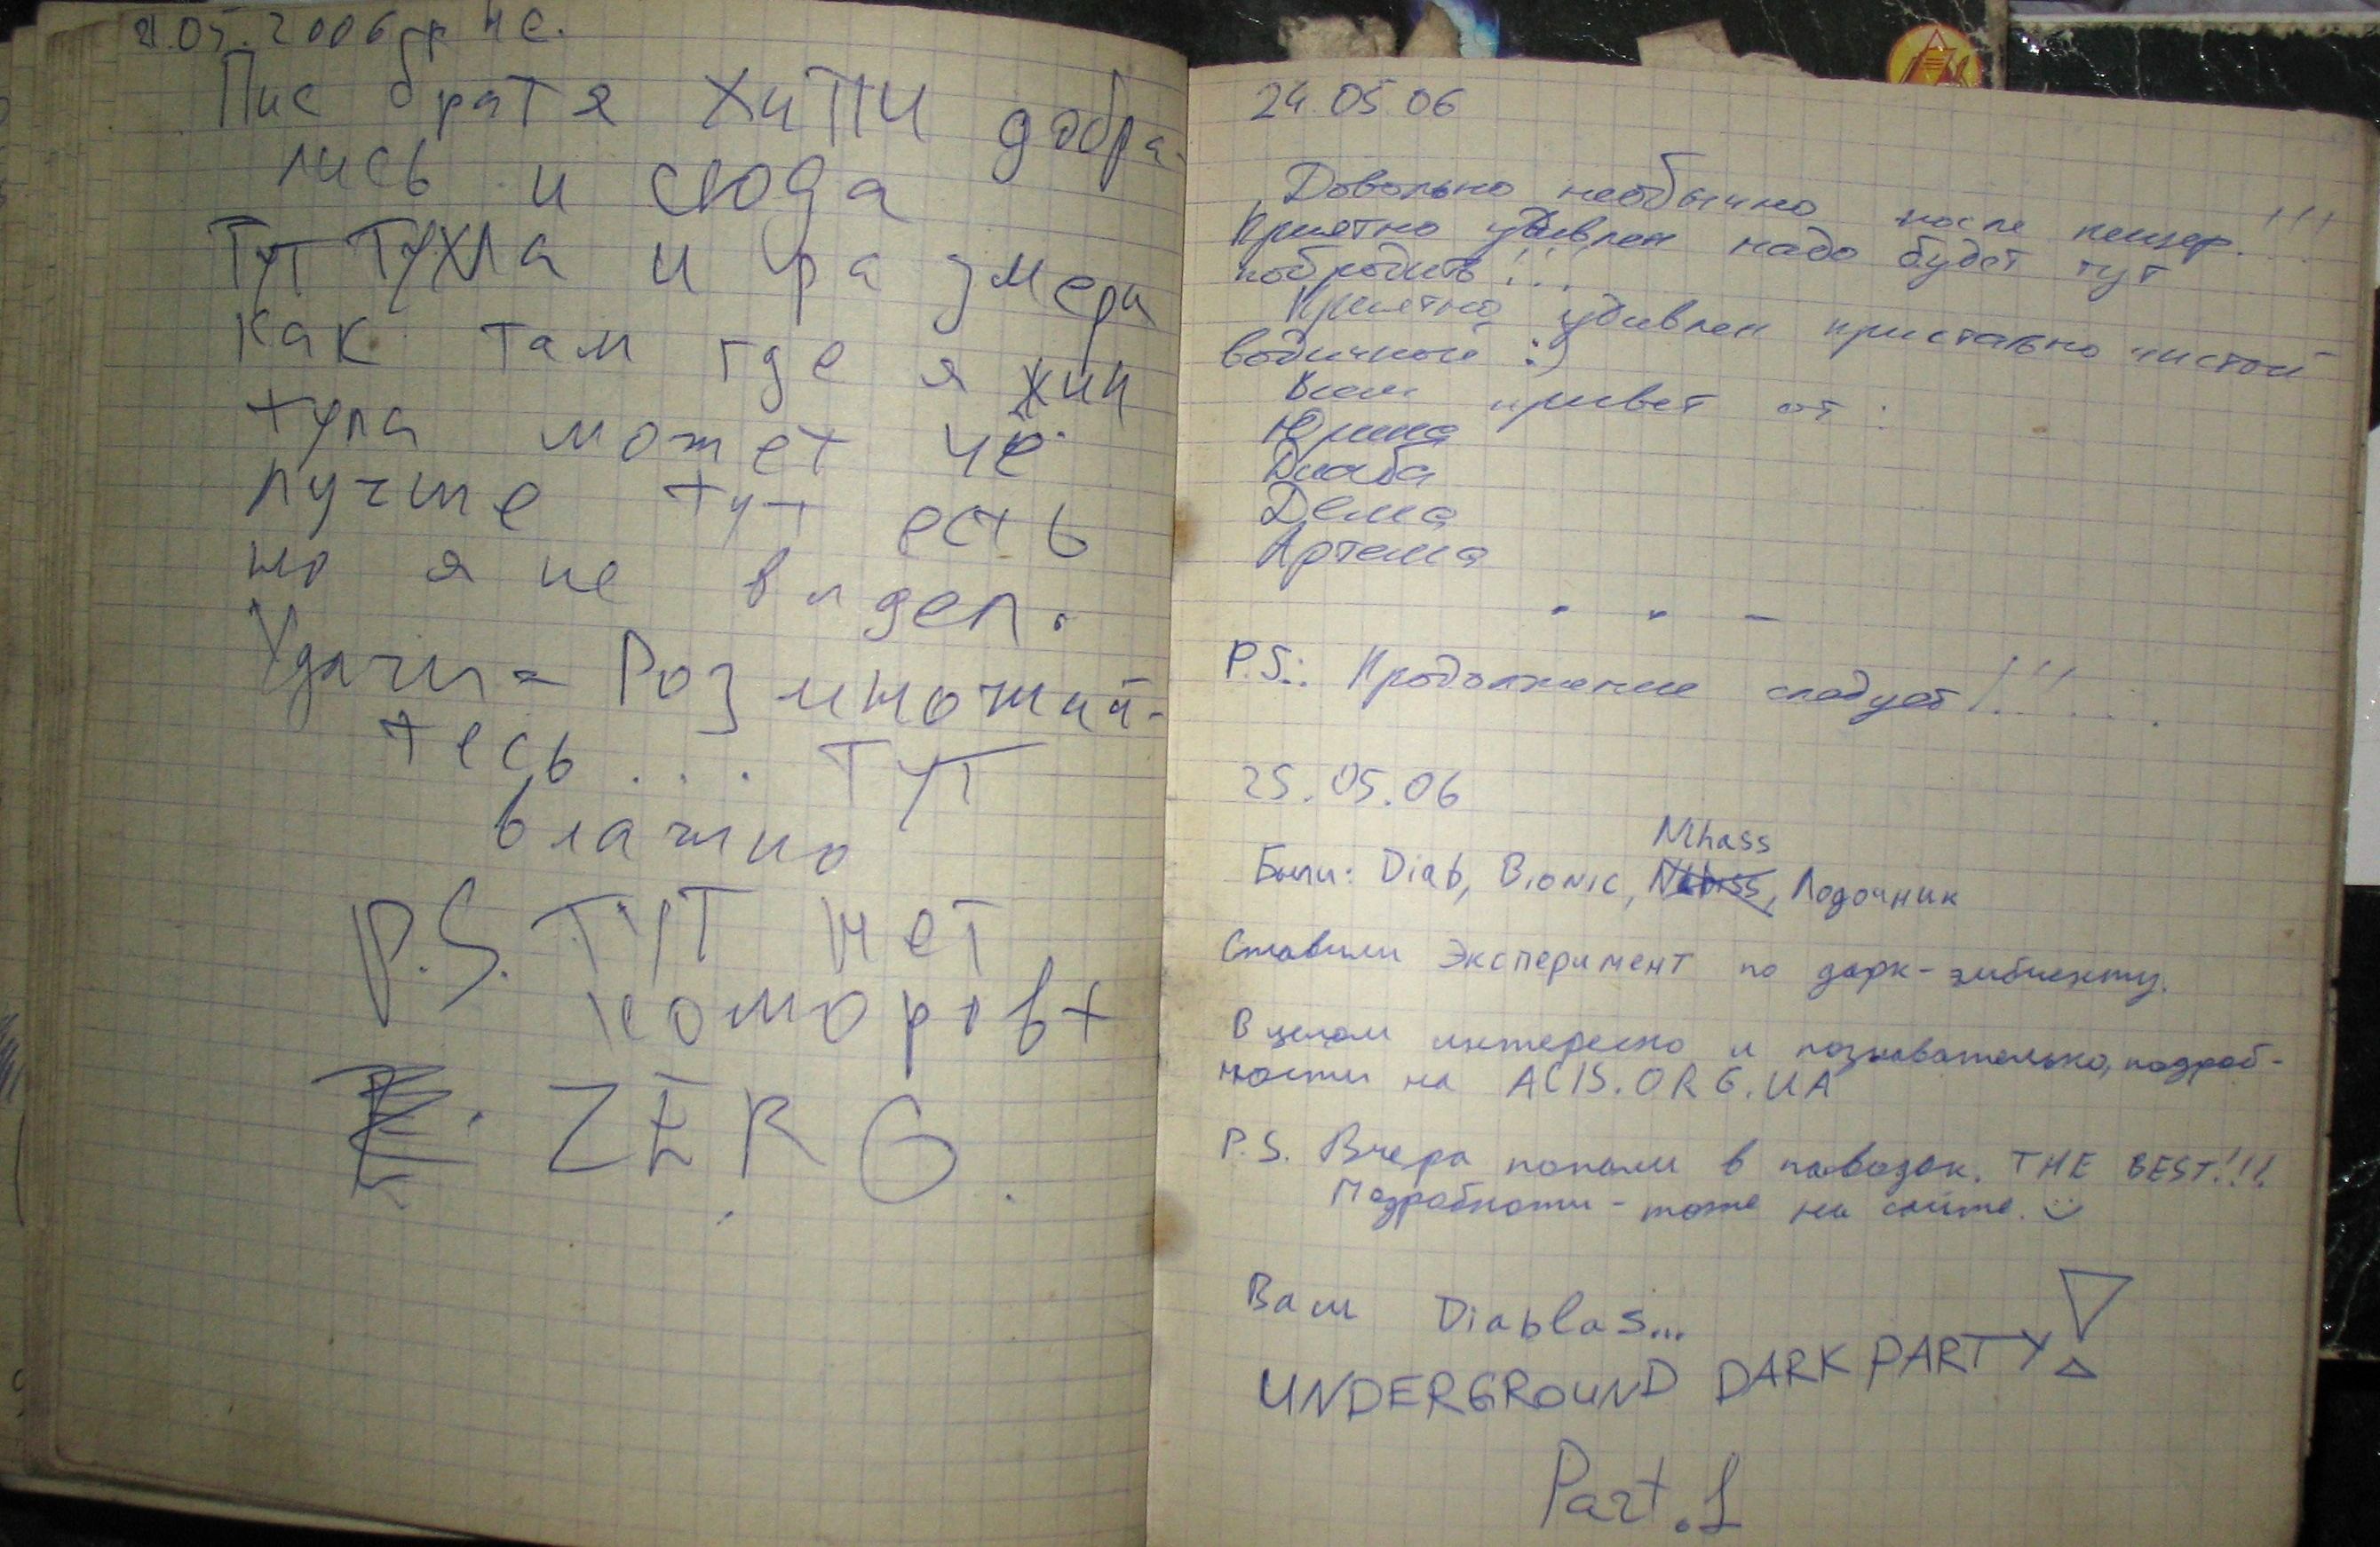 21.05.2006 гр Н.С.
Пис братя хиппи добра-
лись и сюда
Тут тухла и размери
как там где я жил
тупа может че
лучше тут есть
но я не видел.
Удачи = Розмножай-
тесь ... Тут
влажно
P.S. Тут нет
коморов +
ZERG.
24.05.06
Довольно необычно после пещер.!!!
Приятно удивлен надо будет тут
побродить!!!
Приятно удивлен кристально чистой
водичкой :)
Всем привет от:
Юрина
Диаба
Дема
Артема
P.S.: Продолжение следует!!!...
25.05.06
Mhass
Были: Diab, Bionic, Лодочник
Ставили эксперимент по дарк-эмбиенту.
В целом интересно и познавательно, подроб-
ности на ACIS.ORG.UA
P.S. Вчера попали в паводок. THE BEST!!!
Подробности - тоже на сайте.
Ваш Diablas...
UNDERGROUND DARK PARTY!
Part.1